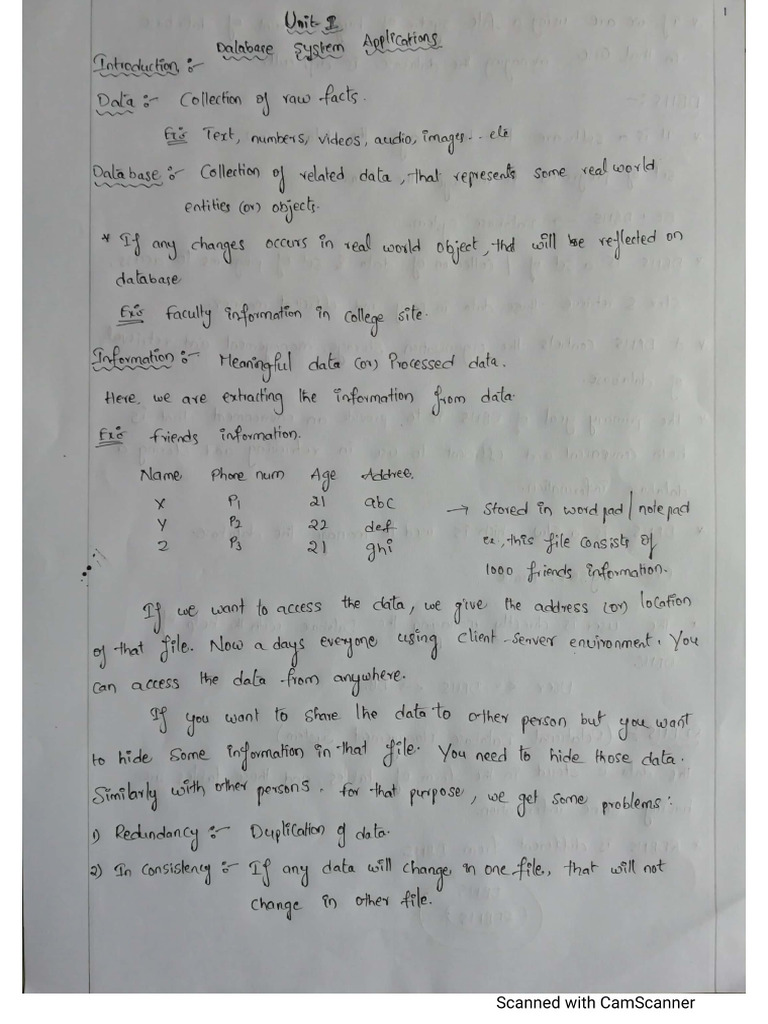 1
Unit-I
Database System Applications
Introduction :-
Data :- Collection of raw facts.
Ex:- Text, numbers, videos, audio, images... etc
Database :- Collection of related data, that represents some real world
entities (or) objects.
* If any changes occurs in real world object, that will be reflected on
database
Ex:- Faculty information in college site.
Information :- Meaningful data (or) Processed data.
Here, we are extracting the information from data.
Ex:- friends information.
Name Phone num Age Addres.
X P1 21 abc → Stored in word pad / note pad
Y P2 22 def , this file consists of
Z P3 21 ghi 1000 friends information.
If we want to access the data, we give the address (or) location
of that file. Now a days everyone using client-server environment. You
can access the data from anywhere.
If you want to share the data to other person but you want
to hide some information in that file. You need to hide those data.
Similarly with other persons. For that purpose, we get some problems:
1) Redundancy :- Duplication of data.
2) In consistency :- If any data will change in one file, that will not
change in other file.
Scanned with CamScanner